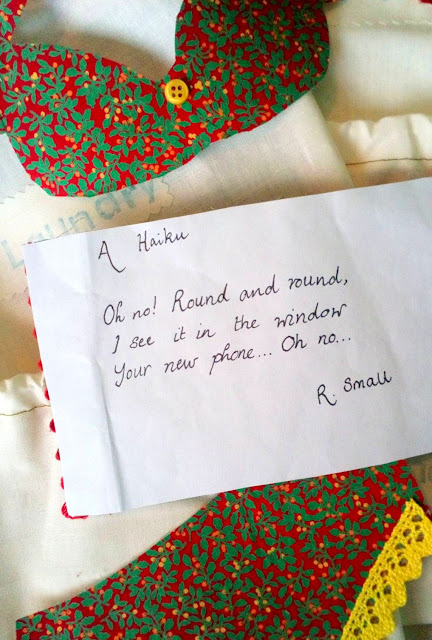 Laundry
A Haiku
Oh no! Round and round,
I see it in the window
Your new phone... Oh no...
R. Small